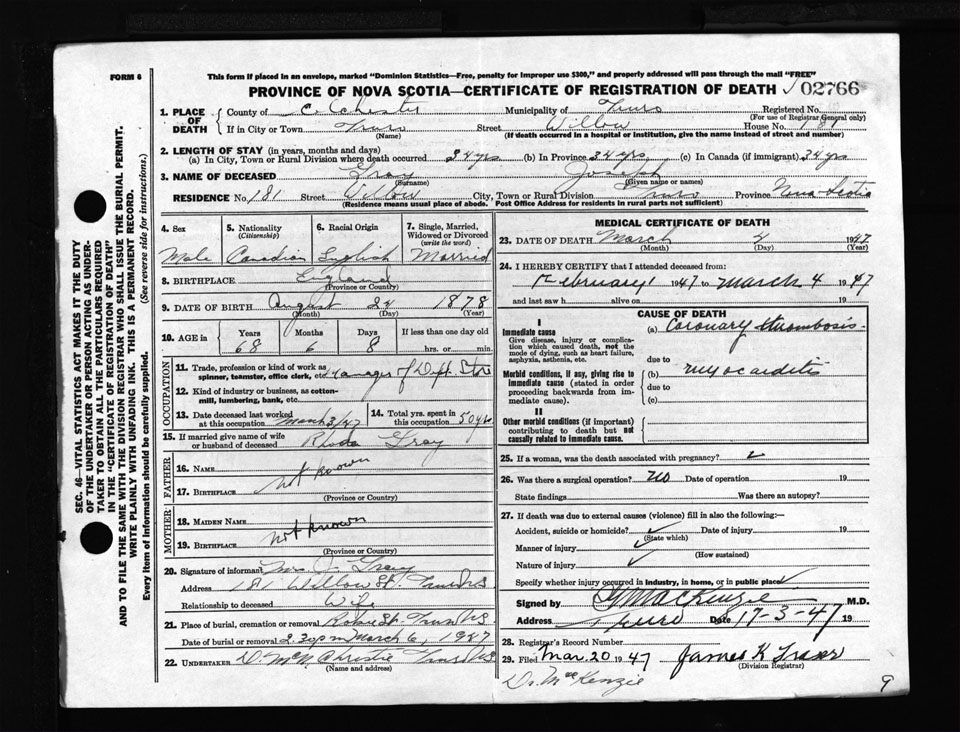 FORM 6
This form if placed in an envelope, marked "Dominion Statistics—Free, penalty for improper use $300," and properly addressed will pass through the mail "FREE"
PROVINCE OF NOVA SCOTIA—CERTIFICATE OF REGISTRATION OF DEATH 02766
1. PLACE OF DEATH County of Colchester Municipality of Truro Registered No.
(For use of Registrar General only)
If in City or Town Truro Street Willow House No. 181
(Name) (If death occurred in a hospital or institution, give the name instead of street and number)
2. LENGTH OF STAY (in years, months and days)
(a) In City, Town or Rural Division where death occurred 34 yrs (b) In Province 34 yrs. (c) In Canada (if immigrant) 34 yrs
3. NAME OF DECEASED Gray Joseph
(Surname) (Given name or names)
RESIDENCE No. 181 Street Willow City, Town or Rural Division Truro Province Nova Scotia
(Residence means usual place of abode. Post Office Address for residents in rural parts not sufficient)
4. Sex 5. Nationality (Citizenship) 6. Racial Origin 7. Single, Married, Widowed or Divorced (write the word)
Male Canadian English Married
8. BIRTHPLACE England
(Province or Country)
9. DATE OF BIRTH August 24 1878
(Month) (Day) (Year)
10. AGE Years Months Days If less than one day old
68 6 8 hrs. or min.
OCCUPATION
11. Trade, profession or kind of work as spinner, teamster, office clerk, etc. Manager of Dept. Store
12. Kind of industry or business, as cotton-mill, lumbering, bank, etc.
13. Date deceased last worked at this occupation March 3/47 14. Total yrs. spent in this occupation 50 yrs
15. If married give name of wife or husband of deceased Rhoda Gray
FATHER
16. NAME
not known
17. BIRTHPLACE
(Province or Country)
MOTHER
18. MAIDEN NAME
not known
19. BIRTHPLACE
(Province or Country)
20. Signature of informant Mrs. J. Gray
Address 181 Willow St. Truro N.S.
Relationship to deceased Wife
21. Place of burial, cremation or removal Robie St. Truro N.S.
Date of burial or removal 2.30 pm March 6, 1947
22. UNDERTAKER D. McN Christie Truro N.S.
(Name and address)
MEDICAL CERTIFICATE OF DEATH
23. DATE OF DEATH March 4 1947
(Month) (Day) (Year)
24. I HEREBY CERTIFY that I attended deceased from:
February 1947 to March 4 1947
and last saw h alive on 19
CAUSE OF DEATH
I
Immediate cause
Give disease, injury or complication which caused death, not the mode of dying, such as heart failure, asphyxia, asthenia, etc.
(a) Coronary thrombosis
due to
Morbid conditions, if any, giving rise to immediate cause (stated in order proceeding backwards from immediate cause).
(b) myocarditis
due to
(c)
II
Other morbid conditions (if important) contributing to death but not causally related to immediate cause.
25. If a woman, was the death associated with pregnancy?
26. Was there a surgical operation? no Date of operation 19
State findings Was there an autopsy?
27. If death was due to external causes (violence) fill in also the following:—
Accident, suicide or homicide? Date of injury 19
(State which)
Manner of injury
(How sustained)
Nature of injury
Specify whether injury occurred in industry, in home, or in public place
Signed by MacKenzie M.D.
Address Truro Date 17-3-47 19
28. Registrar's Record Number
29. Filed Mar 20 1947 James K Fraser
(Division Registrar)
Dr. MacKenzie
9
SEC. 46—VITAL STATISTICS ACT MAKES IT THE DUTY
OF THE UNDERTAKER OR PERSON ACTING AS UNDER-
TAKER TO OBTAIN ALL THE PARTICULARS REQUIRED
IN THE "CERTIFICATE OF REGISTRATION OF DEATH"
AND TO FILE THE SAME WITH THE DIVISION REGISTRAR WHO SHALL ISSUE THE BURIAL PERMIT.
WRITE PLAINLY WITH UNFADING INK. THIS IS A PERMANENT RECORD.
Every item of information should be carefully supplied. (See reverse side for instructions.)